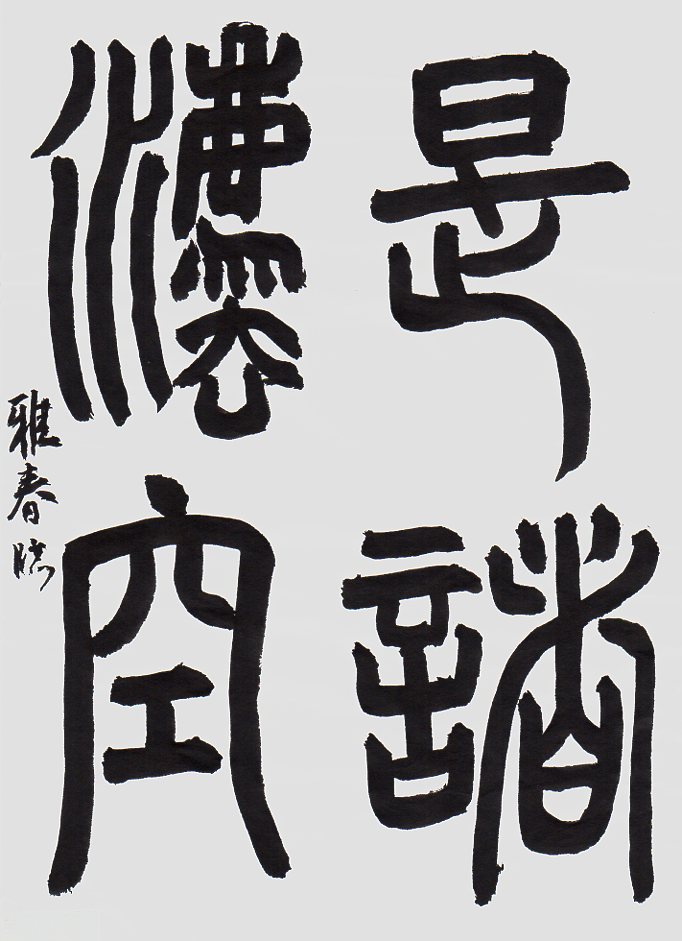 是諸
灋空
雅春臨